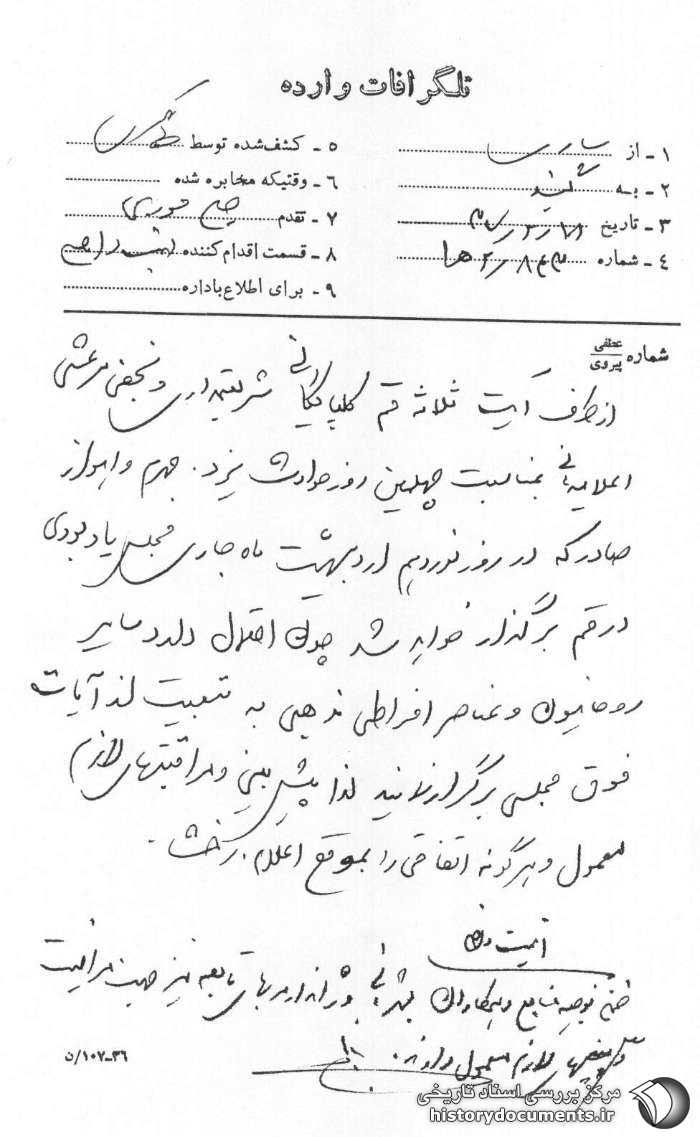 تلگرافات وارده
۱ـ از ساری
۲ـ به
۳ـ تاریخ
۴ـ شماره
۵ ـ کشف‌شده توسط
۶ ـ وقتیکه مخابره شده
۷ ـ تقدم خیلی فوری
۸ ـ قسمت اقدام کننده
۹ ـ برای اطلاع باداره
شماره عطفی پیروی
از طرف آیت ثلاثه قم گلپایگانی شریعتمداری و نجفی مرعشی
اعلامیه‌ای بمناسبت چهلمین روز حوادث یزد. جهرم و اهواز
صادر که در روز نوزدهم اردیبهشت ماه جاری مجلس یادبودی
در قم برگذار خواهد شد چون احتمال دارد سایر
روحانیون و عناصر افراطی مذهبی به تبعیت از آیات
فوق مجلسی برگزار نمایند لذا پیش بینی و مراقبتهای لازم
معمول و هرگونه اتفاقی را بموقع اعلام.
ضمن توجیه منابع و همکاران
لازم معمول دارند.
۳۶-۱۰۷/ن
مرکز بررسی اسناد تاریخی
historydocuments.ir